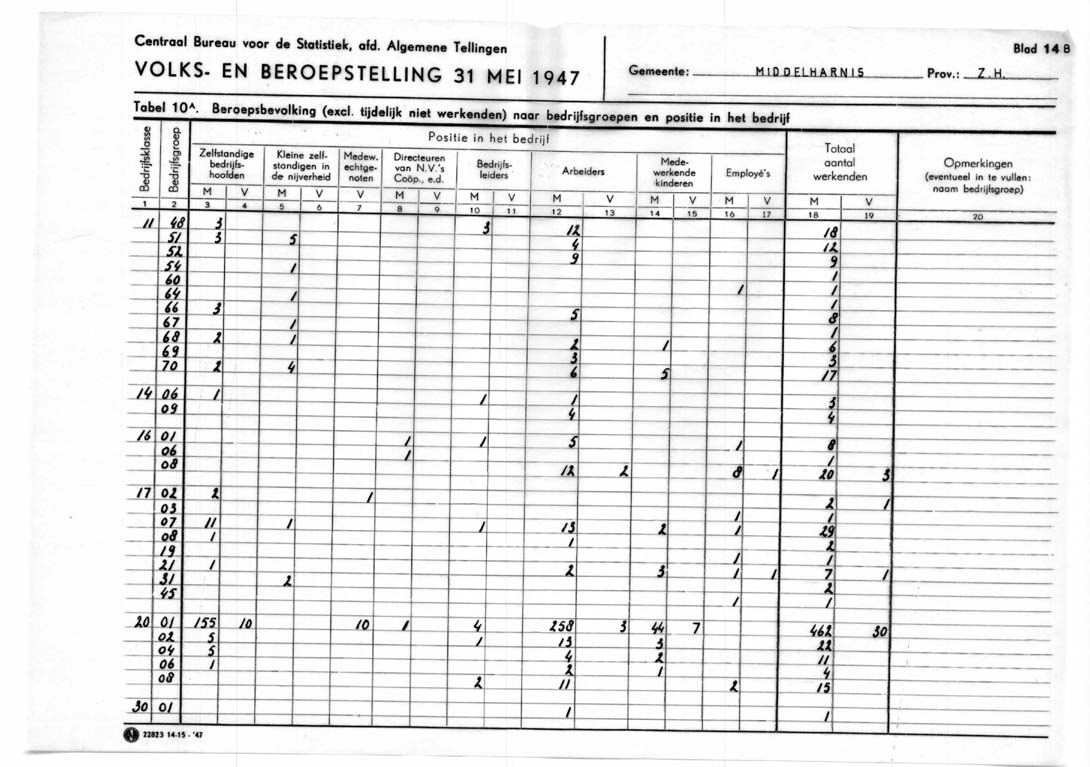 Centraal Bureau voor de Statistiek, afd. Algemene Tellingen
Blad 14 B
VOLKS- EN BEROEPSTELLING 31 MEI 1947
Gemeente: MIDDELHARNIS Prov.: Z.H.
Tabel 10ᴬ. Beroepsbevolking (excl. tijdelijk niet werkenden) naar bedrijfsgroepen en positie in het bedrijf
Bedrijfsklasse
Bedrijfsgroep
Positie in het bedrijf
Zelfstandige bedrijfs- hoofden
Kleine zelf- standigen in de nijverheid
Medew. echtge- noten
Directeuren van N.V.'s Coöp., e.d.
Bedrijfs- leiders
Arbeiders
Mede- werkende kinderen
Employé's
Totaal aantal werkenden
Opmerkingen (eventueel in te vullen: naam bedrijfsgroep)
M V M V V M V M V M V M V M V M V
1 2 3 4 5 6 7 8 9 10 11 12 13 14 15 16 17 18 19 20
11 48 3 3 12 18
51 3 5 4 12
52 9 9
54 1 1
60 1 1
64 1 1
66 3 5 8
67 1 1
68 2 1 2 1 6
69 3 3
70 2 4 6 5 17
14 06 1 1 1 3
09 4 4
16 01 1 1 5 1 8
06 1 1
08 12 2 8 1 20 3
17 02 2 1 2 1
03 1 1
07 11 1 1 13 2 1 29
08 1 1 2
19 1 1
21 1 2 3 1 1 7 1
31 2 2
45 1 1
20 01 155 10 10 1 4 258 3 44 7 462 30
02 5 1 13 3 22
04 5 4 2 11
06 1 2 1 4
08 2 11 2 15
30 01 1 1
22823 14-15 - '47